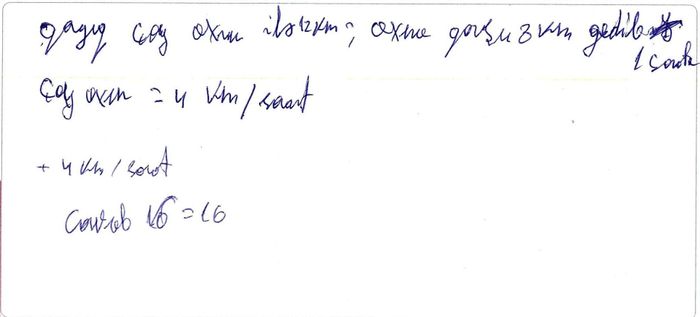 qayıq çay axını ilə 12 km; axına qarşı 3 km gedib
1 saata
çay axın = 4 km/saat
+ 4 km/saat
Cavab 16 = 16